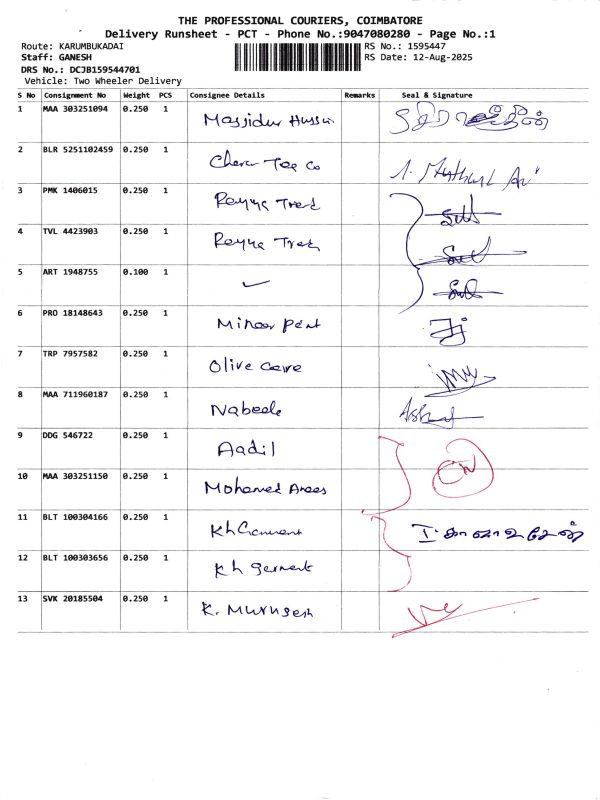 THE PROFESSIONAL COURIERS, COIMBATORE
Delivery Runsheet - PCT - Phone No.:9047080280 - Page No.:1
Route: KARUMBUKADAI RS No.: 1595447
Staff: GANESH RS Date: 12-Aug-2025
DRS No.: DCJB159544701
Vehicle: Two Wheeler Delivery
S No Consignment No Weight PCS Consignee Details Remarks Seal & Signature
1 MAA 303251094 0.250 1 Massidur
2 BLR 5251102459 0.250 1 Tea Co
3 PMK 1406015 0.250 1
4 TVL 4423903 0.250 1
5 ART 1948755 0.100 1 ✓
6 PRO 18148643 0.250 1
7 TRP 7957582 0.250 1 Olive
8 MAA 711960187 0.250 1 Nabeela
9 DDG 546722 0.250 1 Aadil
10 MAA 303251150 0.250 1 Mohamed Anees
11 BLT 100304166 0.250 1 Kh Garment
12 BLT 100303656 0.250 1 Kh Garment
13 SVK 20185504 0.250 1 K. Murugesh